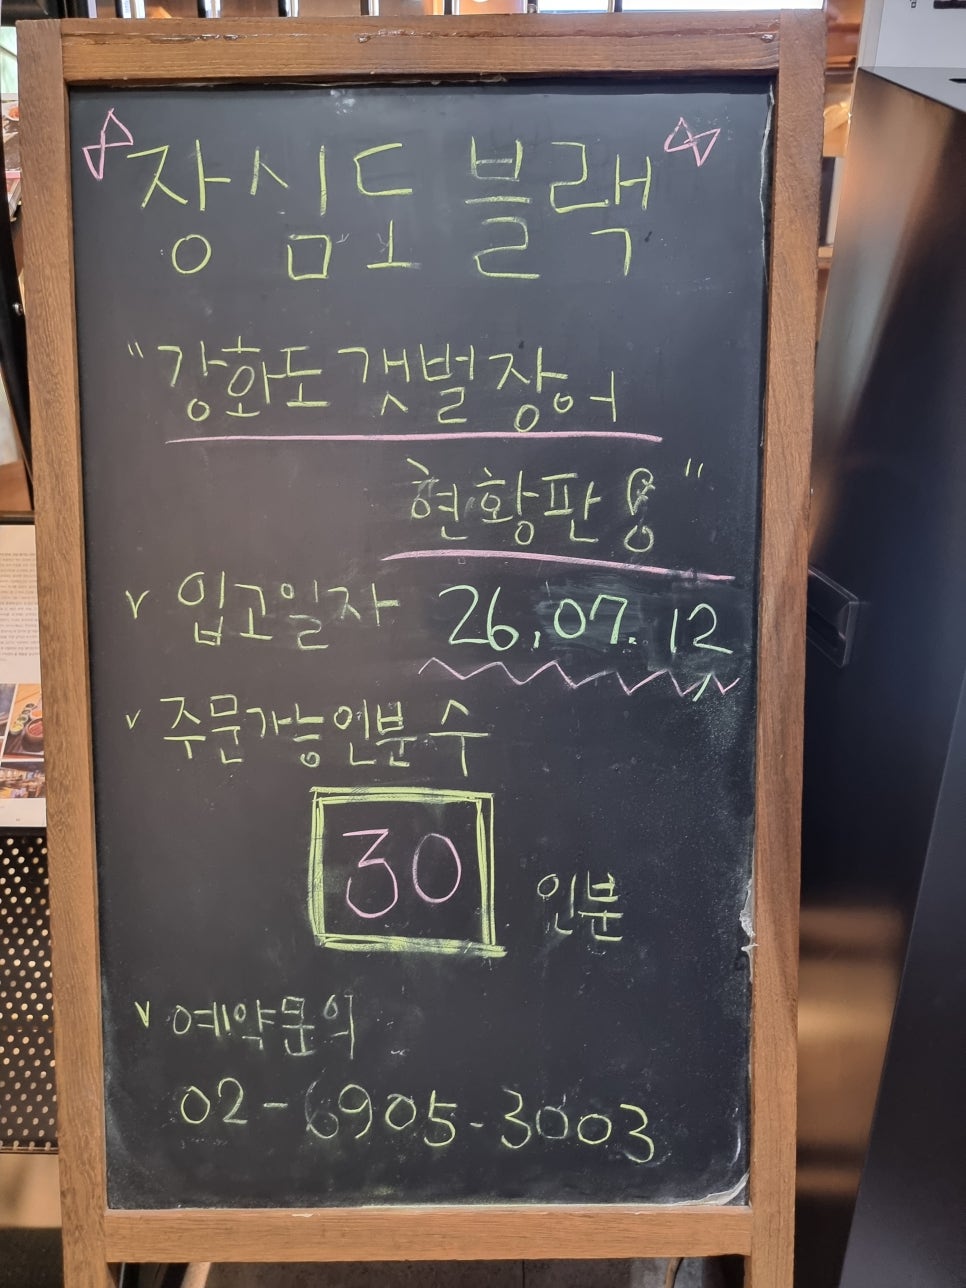 장심도 블랙
"강화도 갯벌장어
현황판"
v 입고일자 26.07.12
v 주문가능인분 수
30 인분
v 예약문의
02-6905-3003